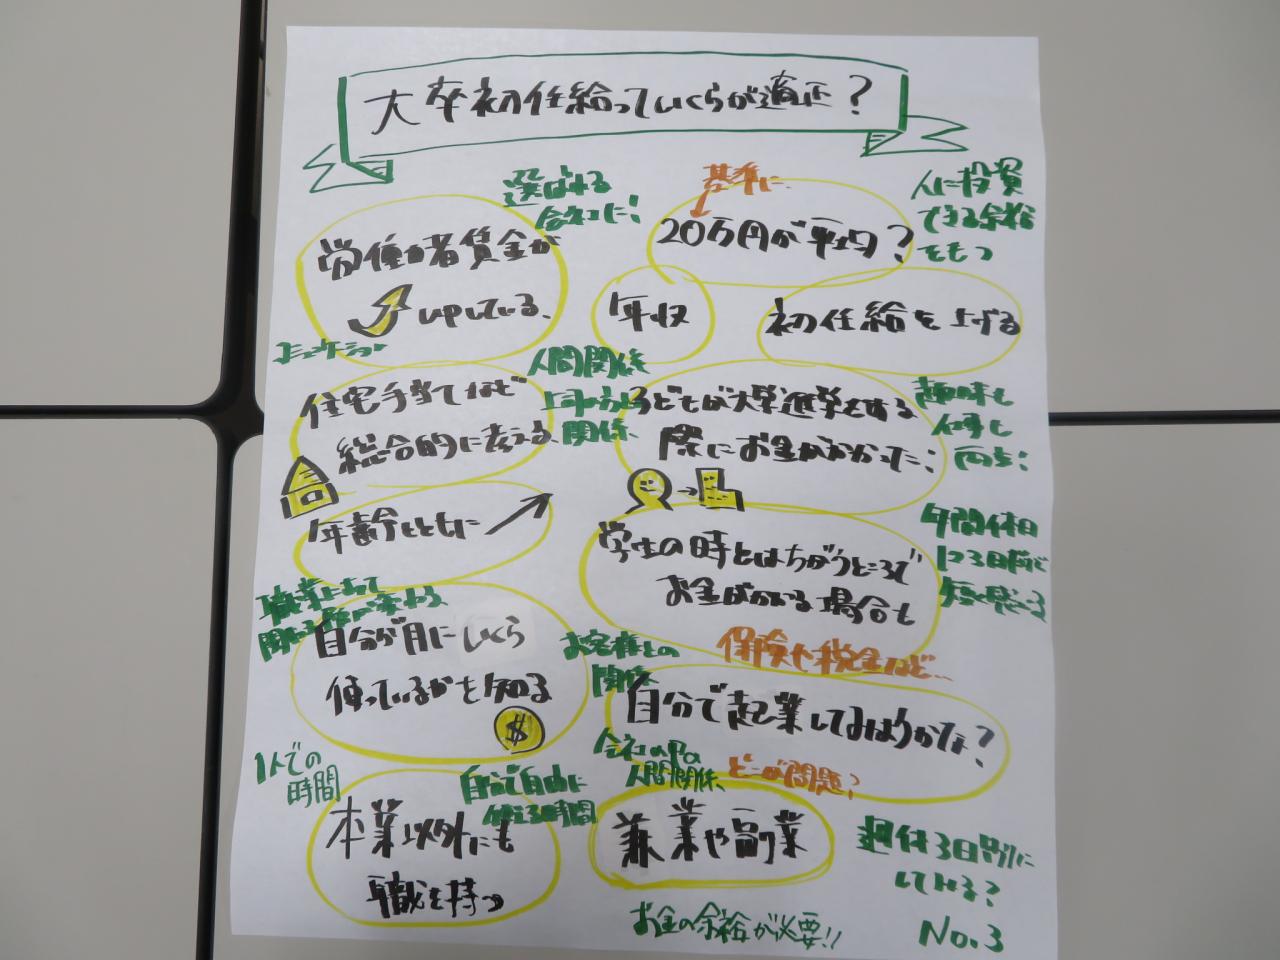 大卒初任給っていくらが適正?
選ばれる
会社に!
基準に
人に投資
できる余裕
をもつ
労働者賃金が
upしている、
20万円が平均?
年収
初任給を上げる
コミュニケーション
住宅手当てなど
総合的に考える、
人間関係
上司から
関係、
子どもが大学進学をする
際にお金がかかった;
趣味も
仕事も
両立;
年齢とともに
学生の時とはちがうところで
お金がかかる場合も
年間休日
123日前後で
職業によって
自分が月にいくら
使っているかを知る
$
お客様との
関係
保険や税金など…
自分で起業してみようかな?
会社の中の
人間関係、
どこが問題?
1人での
時間
自分で自由に
使える時間
本業以外にも
職を持つ
兼業や副業
週休3日制に
してみる?
お金の余裕が必要!!
No.3